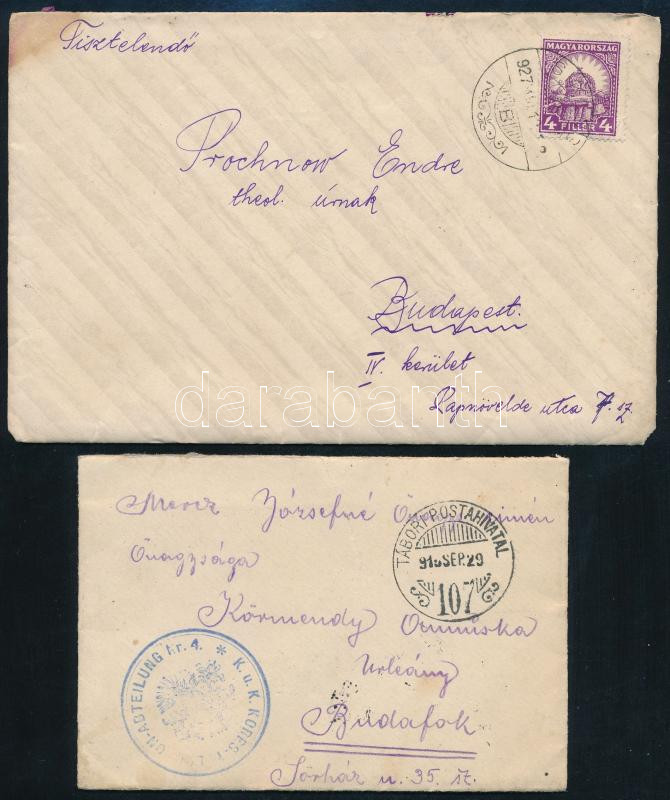 Tisztelendő
MAGYARORSZÁG
4 FILLÉR 4
927
B
Prochnow Endre
theol. úrnak
Budapest.
IV. kerület
Papnövelde utca 7. sz
darabanth
Mercz Józsefné címén
Őnagysága
TÁBORI POSTAHIVATAL
SEP. 29
107
Körmendy
Urleány
Budafok
Sörház u. 35. sz.
ABTEILUNG Nr. 4. * K. u. K.